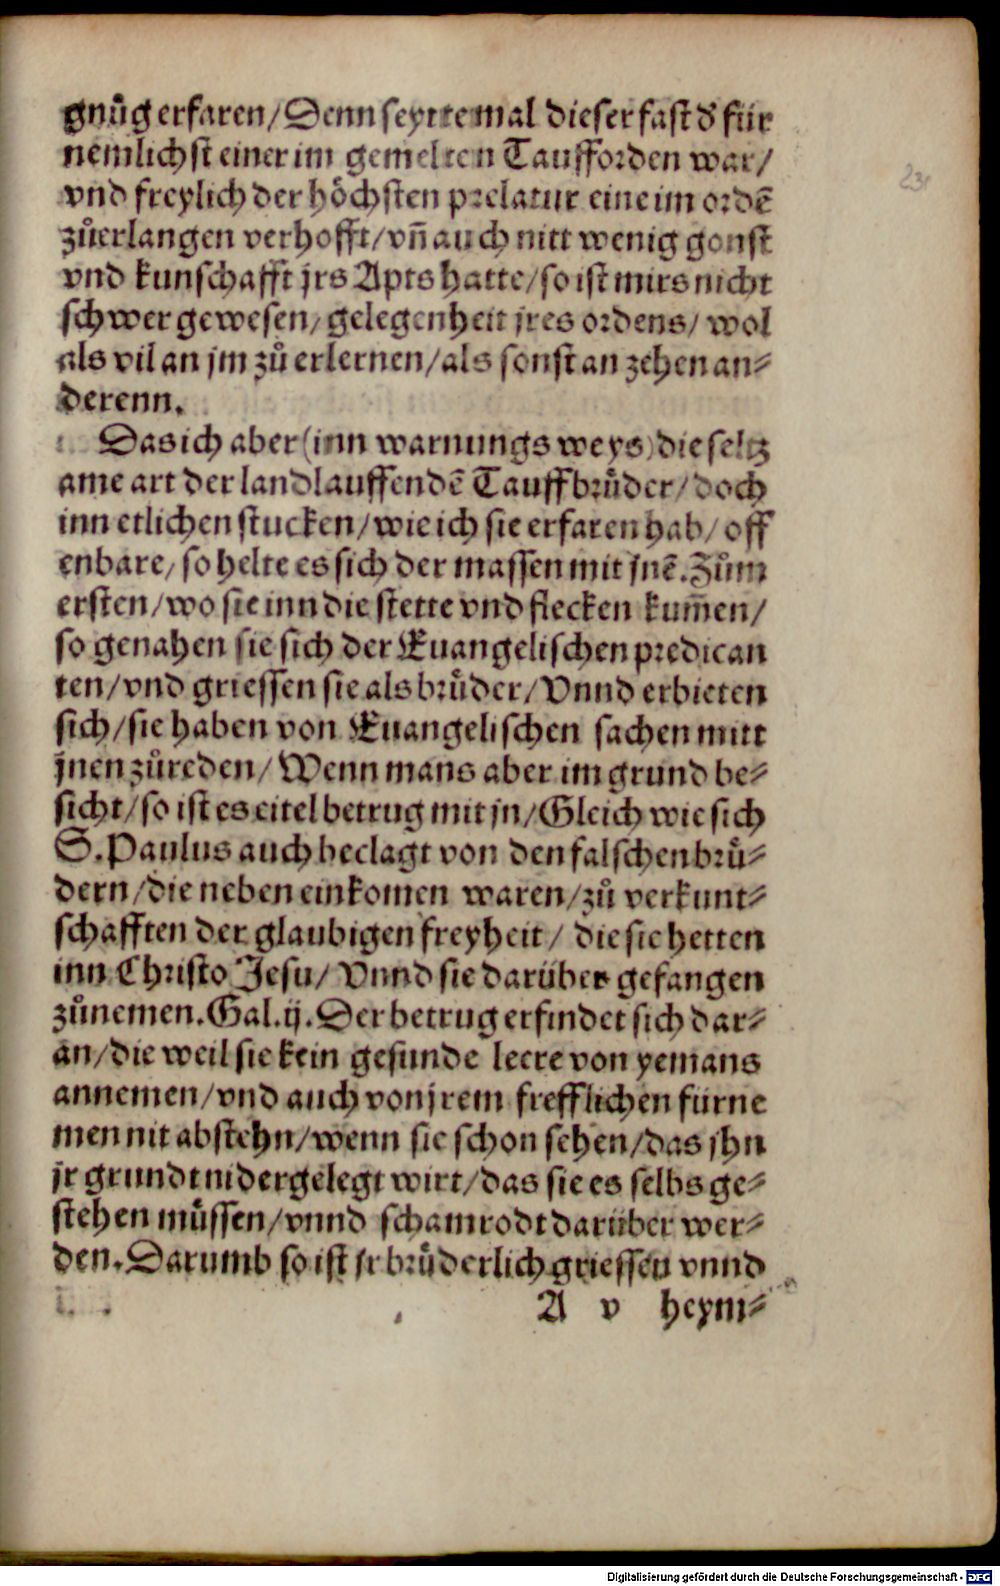 gnůg erfaren/ Denn seytte mal dieser fast d' für
nemlichst einer im gemelten Taufforden war/
vnd freylich der höchsten prelatur eine im ordē
zůerlangen verhofft/ vñ auch nitt wenig gonst
vnd kunschafft jrs Apts hatte/ so ist mirs nicht
schwer gewesen/ gelegenheit jres ordens/ wol
als vil an jm zů erlernen/ als sonst an zehen an⸗
derenn.
Das ich aber (inn warnungs weys) die seltz
ame art der landlauffendē Tauffbrůder/ doch
inn etlichen stucken/ wie ich sie erfaren hab/ off
enbare/ so helte es sich der massen mit jnē. Zům
ersten/ wo sie inn die stette vnd flecken kum̄en/
so genahen sie sich der Euangelischen predican
ten/ vnd griessen sie als brůder/ Vnnd erbieten
sich/ sie haben von Euangelischen sachen mitt
jnen zůreden/ Wenn mans aber im grund be⸗
sicht/ so ist es eitel betrug mit jn/ Gleich wie sich
S. Paulus auch beclagt von den falschen brů⸗
dern/ die neben einkomen waren/ zů verkunt⸗
schafften der glaubigen freyheit/ die sie hetten
inn Christo Jesu/ Vnnd sie darüber gefangen
zůnemen. Gal. ij. Der betrug erfindet sich dar⸗
an/ die weil sie kein gesunde leere von yemans
annemen/ vnd auch von jrem frefflichen fürne
men nit abstehn/ wenn sie schon sehen/ das jhn
jr grundt nidergelegt wirt/ das sie es selbs ge⸗
stehen můssen/ vnnd schamrodt darüber wer⸗
den. Darumb so ist jr brůderlich griessen vnnd
A v heym⸗
231
Digitalisierung gefördert durch die Deutsche Forschungsgemeinschaft - DFG